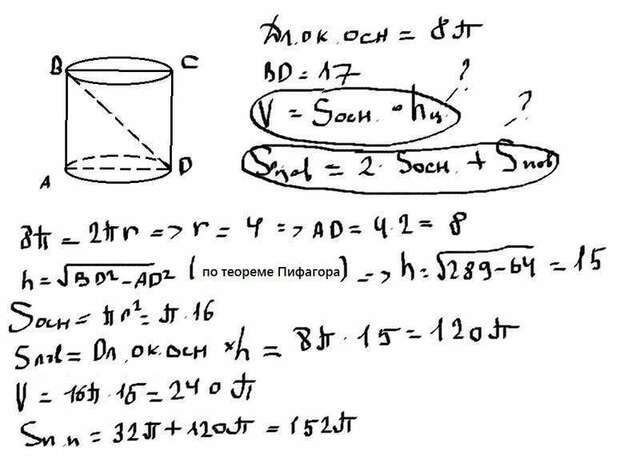 B C
A D
Дл.ок.осн = 8π
BD = 17
?
V = Sосн. · hц.
?
Sпов = 2 · Sосн. + Sпов
8π = 2πr => r = 4 => AD = 4·2 = 8
h = √BD² - AD² (по теореме Пифагора) => h = √289-64 = 15
Sосн = πr² = π·16
Sпов = Дл.ок.осн × h = 8π · 15 = 120π
V = 16π·15 = 240π
Sп.п = 32π + 120π = 152π